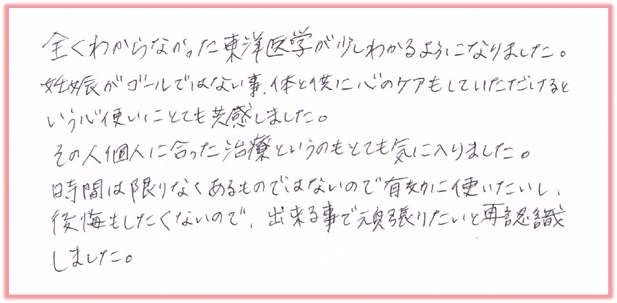 全くわからなかった東洋医学が少しわかるようになりました。
妊娠がゴールではない事、体と供に心のケアもしていただけると
いう心使いにとても共感しました。
その人個人に合った治療というのもとても気に入りました。
時間は限りなくあるものではないので有効に使いたいし、
後悔もしたくないので、出来る事で頑張りたいと再認識
しました。